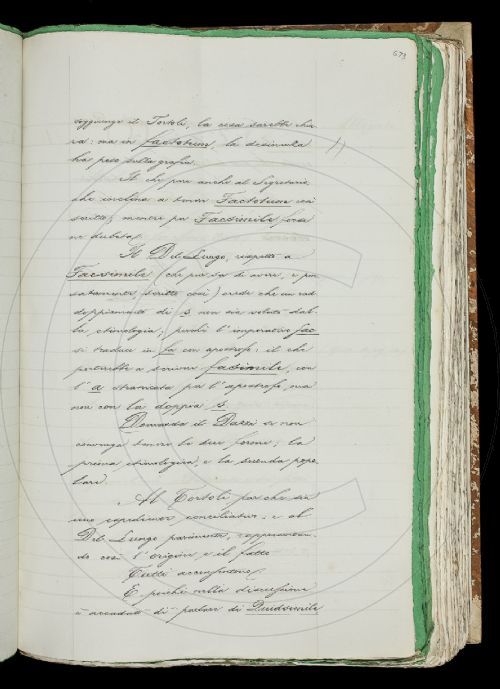 673
soggiunge il Tortoli, la cosa sarebbe chia
ra: ma in factotum, la desinenza
ha peso sulla grafia.
Il che pare anche al Segretario,
che inclina a tener Factotum così
scritto, mentre per Facsimile, forse
ne dubita.
Il Del Lungo, rispetto a
Facsimile (che pur sa di avere, e pen
satamente, scritto così) crede che un rad
doppiamento di s non sia voluto dal
la etimologia; perché l'imperativo fac
si traduce in fa con apostrofe: il che
porterebbe a scrivere fasimile, con
l'a stroncata per l'apostrofe, ma
non con la doppia s.
Domanda il Dazzi se non
convenga tenere le due forme; la
prima etimologica, e la seconda popo
lare.
Al Tortoli par che sia
uno espediente conciliativo: e al
Del Lungo parimente,
do così l'origine e il fatto.
Tutti acconsentono.
E perché nella discussione
è accaduto di parlare di Quidsimile